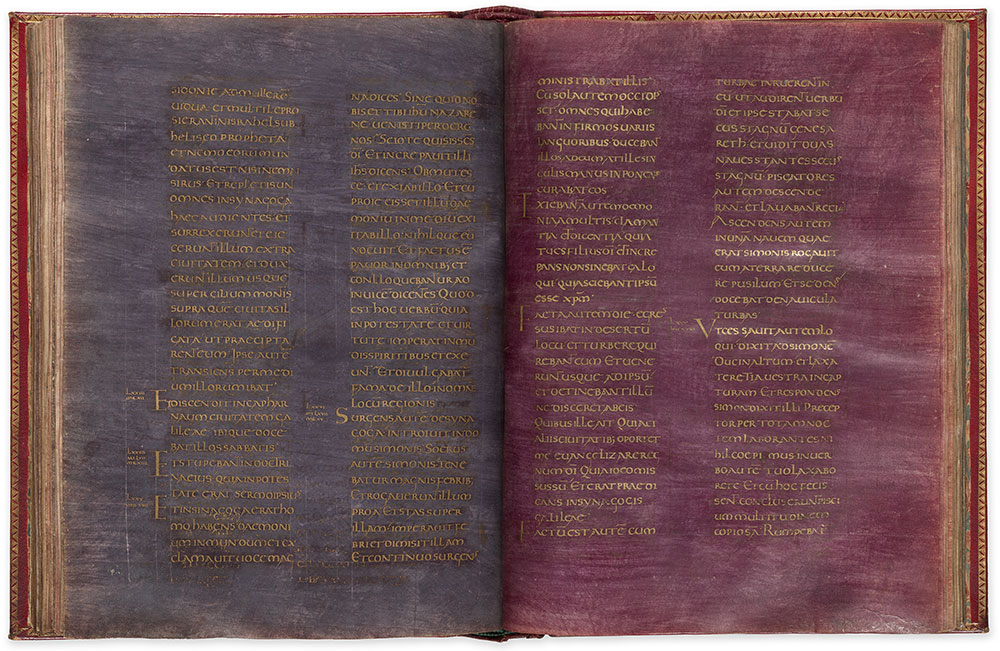 SIDONIE AD MULIERE
UIDUA· ET MULTI LEPRO
SI ERAN IN ISRAHEL SUB
HELISEO PROPHETA
ET NEMO EORUM MUN
DATUS EST NISI NEMAN
SIRUS· ET REPLETI SUN
OMNES IN SYNAGOGA
HAEC AUDIENTES· ET
SURREXERUN· ET EIE
CERUN ILLUM EXTRA
CIUITATEM· ET DUX
ERUN ILLUM USQUE
SUPERCILIUM MONTIS
SUPRA QUE CIUITAS IL
LORUM ERAT AEDIFI
CATA UT PRAECIPITA
REN EUM· IPSE AUTE
TRANSIENS PER MEDI
UM ILLORUM IBAT
ET DISCENDIT IN CAPHAR
NAUM CIUITATEM GA
LILEAE· IBIQUE DOCE
BAT ILLOS SABBATIS
ET STUPEBAN IN DOCTRI
NA EIUS QUIA IN POTES
TATE ERAT SERMO IPSIUS
ET IN SYNAGOGA ERAT HO
MO HABENS DAEMONI
UM INMUNDUM· ET EX
CLAMAUIT UOCE MAG
NA DICES· SINE QUID NO
BIS ET TIBI IHU NAZARE
NE· UENISTI PERDERE
NOS· SCIO TE QUI SIS SCS
DI· ET INCREPAUIT ILLI
IHS DICENS· OBMUTES
CE· ET EXI AB ILLO· ET CU
PROIECISSET ILLU DAE
MONIU IN MEDIU· EXI
IT AB ILLO· NIHILQUE EU
NOCUIT· ET FACTUS E
PAUOR IN OMNIB· ET
CONLOQUEBANUR AD
INUICE DICENTES· QUOD
EST HOC UERBU QUIA
IN POTESTATE ET UIR
TUTE IMPERAT INMU
DIS SPIRITIBUS ET EXE
UN· ET DIUULGABAT
FAMA DE ILLO IN OMNE
LOCU REGIONIS
SURGENS AUTE DE SYNA
GOGA INTROIUIT IN DO
MU SIMONIS· SOCRUS
AUTE SIMONIS TENE
BATUR MAGNIS FEBRIB·
ET ROGAUERUN ILLUM
PRO EA· ET STAS SUPER
ILLAM· IMPERAUIT FE
BRI· ET DIMISIT ILLAM
ET CONTINUO SURGENS
MINISTRABAT ILLIS
CU SOL AUTEM OCCIDIS
SET· OMNES QUI HABE
BAN INFIRMOS UARIIS
LANGUORIBUS· DUCEBAN
ILLOS AD EUM· AT ILLE SIN
GULIS MANUS INPONENS
CURABAT EOS
EXIEBAN AUTEM DEMO
NIA A MULTIS CLAMAN
TIA· ET DICENTIA QUIA
TU ES FILIUS DI· ET INCRE
PANS NON SINEBAT EA LO
QUI QUIA SCIEBANT IPSU
ESSE XPM
FACTA AUTEM DIE· EGRES
SUS IBAT IN DESERTU
LOCU· ET TURBE REQUI
REBAN EUM· ET UENE
RUN USQUE AD IPSU
ET DETINEBAN ILLU
NE DISCEDERET AB EIS
QUIBUS ILLE AIT· QUIA ET
ALIIS CIUITATIB· OPORTET
ME EUANGELIZARE REG
NUM DI· QUIA IDEO MIS
SUS SU· ET ERAT PRAEDI
CANS IN SYNAGOGIS
GALILEAE
FACTUS EST AUTE CUM
TURBAE INRUEREN IN
EU· UT AUDIREN UERBU
DI· ET IPSE STABAT SE
CUS STAGNU GENESA
RETH· ET UIDIT DUAS
NAUES STANTES SECUS
STAGNU· PISCATORES
AUTEM DESCENDE
RAN· ET LAUABAN RETIA
ASCENDENS AUTEM
IN UNA NAUEM QUAE
ERAT SIMONIS ROGAUIT
EUM A TERRA REDUCE
RE PUSILUM· ET SEDENS
DOCEBAT DE NAUICULA
TURBAS
UT CESSAUIT AUTEM LO
QUI· DIXIT AD SIMONE
DUC IN ALTUM· ET LAXA
TE RETIA UESTRA IN CAP
TURAM· ET RESPONDENS
SIMON DIXIT ILLI· PRECEP
TOR PER TOTAM NOC
TEM LABORANTES NI
HIL COEPIMUS IN UER
BO AUTE TUO LAXABO
RETE· ET CU HOC FECIS
SEN· CONCLUSERUN PISCI
UM MULTITUDINEM
COPIOSA· RUMPEBAT